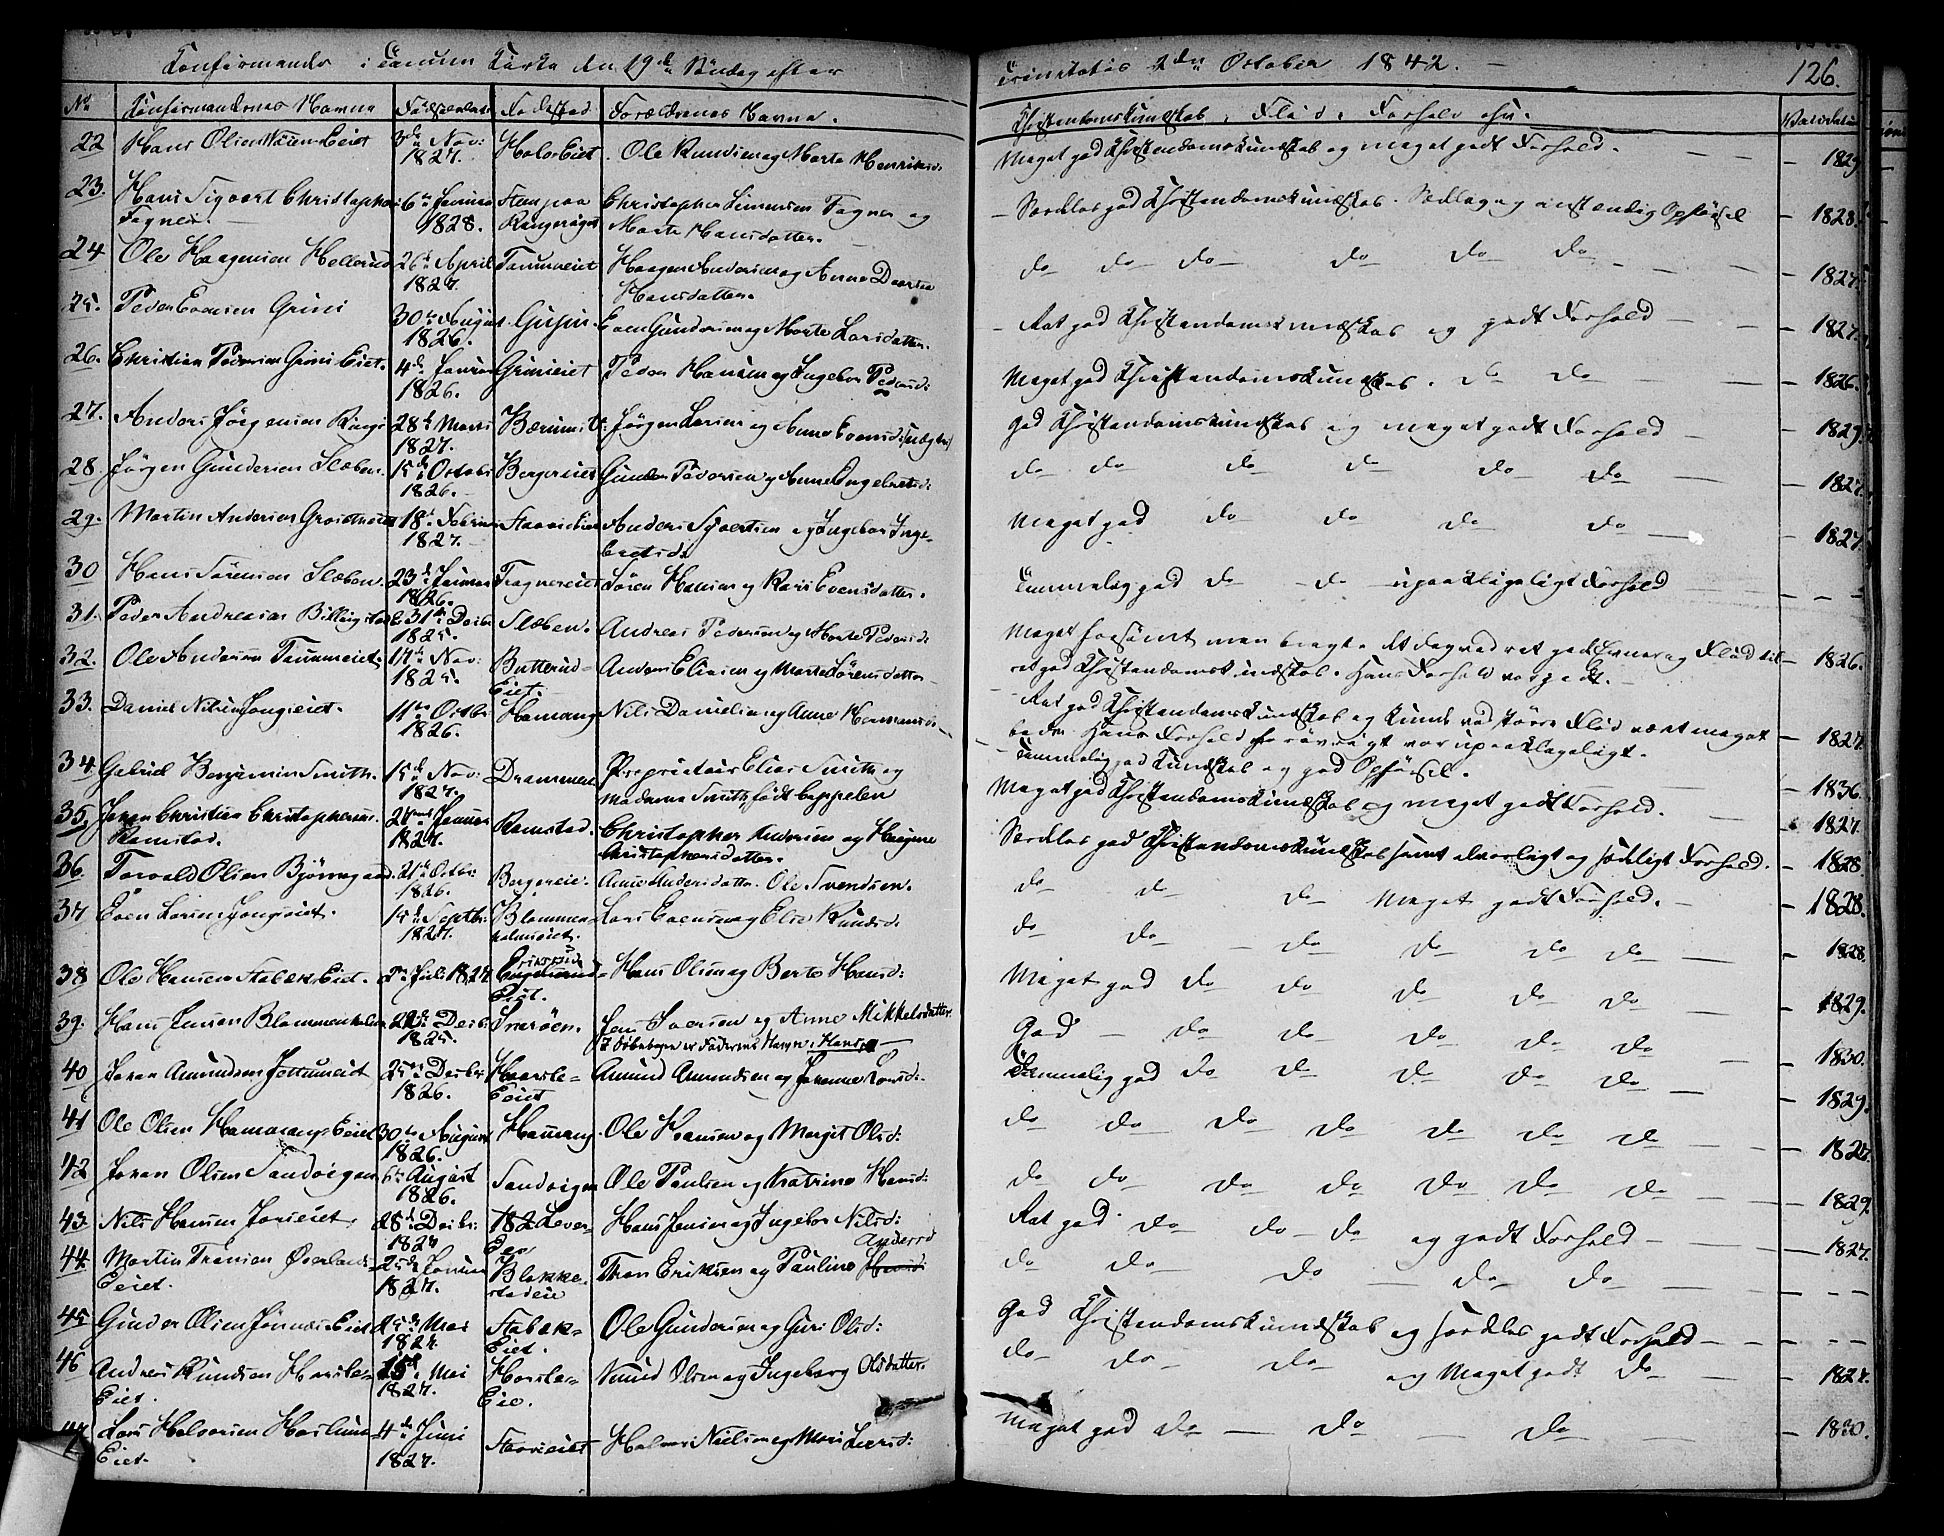 Confirmander i Tanum Kirke den 19de Søndag efter Trinitatis 2den October 1842. 126.
No Confirmandernes Navne Fødselsdato Fødested Forældrenes Navne. Christendomskundskab, Flid, Forhold osv. Vaccinations
22 Hans Olsen Eiet 3de Nov: Hals Eiet Ole Knudsen og Marte Henriksd. Meget god Christendomskundskab og meget godt Forhold. 1829
1827.
23. Hans Sigvart Christophers 6te Januar Steen paa Christopher Simensen Fagner og Særdeles god Christendomskundskab. Sædelig og anstændig Opførsel 1828.
Fagner 1828. Ringeriget Marte Hansdatter.
24 Ole Haagensen Hellerud 26de April Tanumeiet Haagen Andersen og Anne Dorthea do do do do do do 1827.
1827. Hansdatter.
25. Peder Evensen Grini 30te August Gusin. Even Gundersen og Marte Larsdatter. Ret god Christendomskundskab og godt Forhold 1827.
1826.
26. Christian Pedersen Grini Eiet. 4de Januar Grinieiet Peder Hansen og Ingebor Pedersd: Meget god Christendomskundskab. do do 1826.
1826.
27. Anders Jørgensen Ringi 28de Marts Bærums V: Jørgen Larsen og Anne Evensd: (uægte) god Christendomskundskab og meget godt Forhold 1829.
1827.
28. Jørgen Gundersen Slæben. 15de Octobr Bergereiet Gunder Pedersen og Anne Ingebretsd: do do do do do do 1827.
1826.
29. Martin Andersen 18de Februar Stavieiet Anders Syvertsen og Ingebor Inge- Meget god do do do do 1827.
1827. bretsd:
30 Hans Sørensen Slæben. 23de Januar Fagnereiet Søren Hansen og Kari Evensdatter. Temmelig god do do upaaklageligt Forhold
1826.
31. Peder Andreasen Billingstad E 31te Decbr Slæben. Andreas Pedersen og Marte Pedersd: Meget forsømt men bragte det dog ved ret god Evne og Flid til 1826.
1825.
32. Ole Andersen Tanumeiet. 17de Nov: Butterud- Anders Eliesen og Marte Sørensdatter ret god Christendomskundskab. Hans Forhold var godt.
1825. Eiet.
33. Daniel Nilsen Jongseiet. 11te Octbr Hamang Nils Danielsen og Anne Hermansd: Ret god Christendomskundskab og kunde ved større Flid været meget 1827.
1826. bedre. Hans Forhold for øvrigt var upaaklageligt.
34. Gabriel Benjamin Smith. 15de Nov: Drammen Proprietair Elias Smith og Temmelig god Kundskab og god Opførsel. 1836.
1827. Madame Smith, født Cappelen
35. Johan Christian Christophersen 2den Januar Ramstad. Christopher Andersen og Haagine Meget god Christendomskundskab og meget godt Forhold. 1827.
Ramstad. 1827. Christophersdatter.
36. Torvald Olsen Bjørnegaard. 21de Octbr: Bergereie. Anne Andersdatter. Ole Svendsen. Særdeles god Christendomskundskab samt alvorligt og sædeligt Forhold. 1828.
1826.
37 Even Larsen Jongseiet. 15de Septbr: Blommen- Lars Evensen og Else Knudsd: do do do Meget godt Forhold. 1828.
1827. holmseiet.
38 Ole Hansen Stabæk Eiet. 2den Juli 1827 Hans Olsen og Berte Hansd: do do do do do do 1828.
Eiet.
39. Hans Jensen Blommenholm 22de Decbr: Snarøen. Jens Iversen og Anne Mikkelsdatter. Meget god do do do do do 1829.
1825. I Døbebogen er Faderens Navn Hans
40 Johan Amundsen Jottumeiet 25de Decbr: Haersle- Amund Amundsen og Johanne Larsd: God do do do do do 1830.
1826. Eiet
41 Ole Olsen Hamarangs Eiet 30te August Hamrang. Ole Hansen og Margit Olsd: Temmelig god do do do do do 1829.
1826.
42 Johan Olsen Sandvigen 6te August Sandvigen Ole Paulsen og Katrine Hansd: do do do do do do do 1827.
1826.
43. Nils Hansen Jarieiet 28de Decbr: Hans Jensen og Ingebor Nilsd: do do do do do do do 1829.
1827
44. Martin Tronsen Øverlands 25de Januar Blakke- Tron Eriksen og Pauline Hansd: Andersd Ret god do do do og godt Forhold 1827.
Eiet. 1827. stadeie
45 Gunder Olsen Eiet 25de Mai Stabæk- Ole Gundersen og Guri Olsd: do do do do do
1827. Eiet.
46 Andreas Knudsen Haersle- 15de Mai Haersle- Knud Olsen og Ingeborg Olsdatter. God Christendomskundskab og særdeles godt Forhold
Eiet. 1827. Eie. do do do og Meget godt do 1827.
47 Lars Halvorsen Haslum 4de Juni Stavieiet Halvor Nielsen og Mari Larsd: Meget god do do do 1830.
Eiet. 1827.